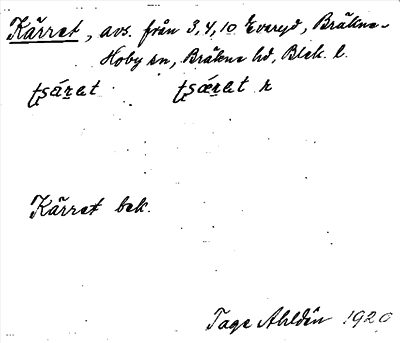 Kärret, avs. från 3,4,10 Everyd, Bräkne-
Hoby sn, Bräkne hd, Blek. l.
tʂárat tʂǽrat n
Kärret bek.
Tage Ahldén 1920